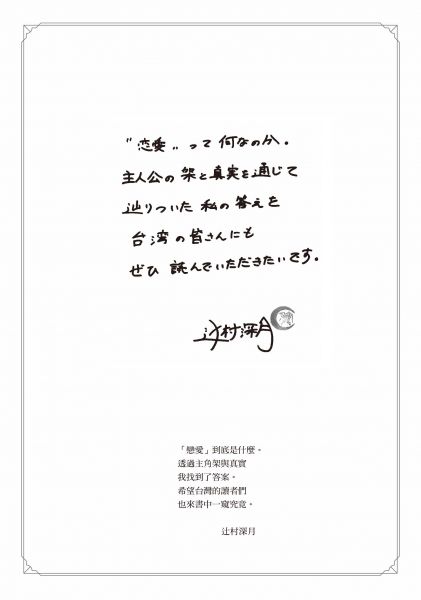 "恋愛"って何なのか。
主人公の架と真実を通じて
辿りついた私の答えを
台湾の皆さんにも
ぜひ 読んでいただきたいです。
辻村深月
「戀愛」到底是什麼。
透過主角架與真實
我找到了答案。
希望台灣的讀者們
也來書中一窺究竟。
辻村深月